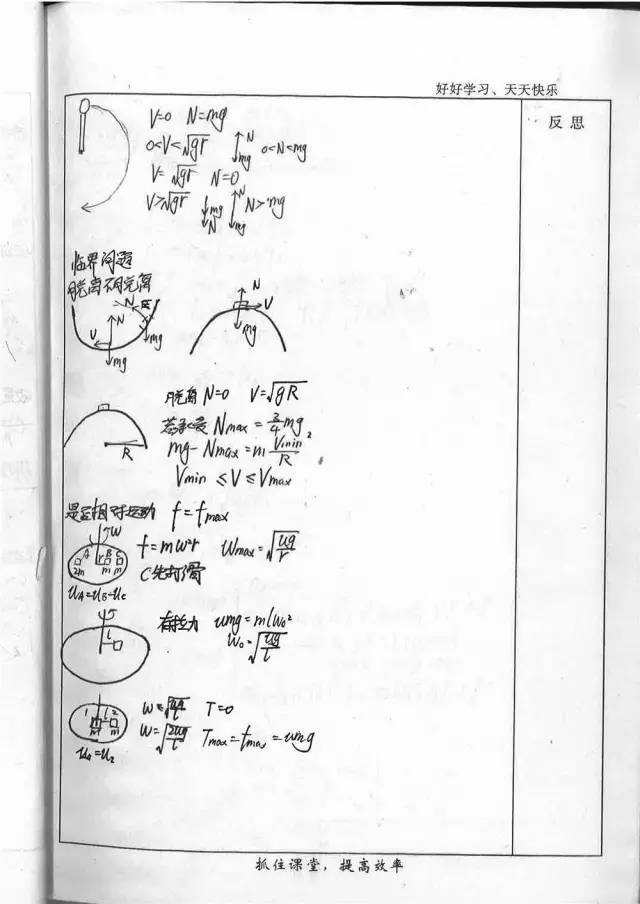 好好学习、天天快乐
反思
V=0 N=mg
0<V<√gr N mg 0<N<mg
V=√gr N=0
V>√gr mg N N mg N>mg
临界问题
脱离不脱离
N
V N mg mg
N V mg
脱离 N=0 V=√gR
若承受 Nmax=3/4mg
R mg-Nmax=m Vmin²/R
Vmin≤V≤Vmax
是否相对运动 f=fmax
W
A r B C 2m m m f=mw²r Wmax=√ug/r
C先打滑
uA=uB=uC
l 有拉力 umg=mlw₀²
W₀=√ug/l
W=√ug/l T=0
1 l 2 m m W=√2ug/l Tmax=fmax=umg
u₁=u₂
抓住课堂，提高效率